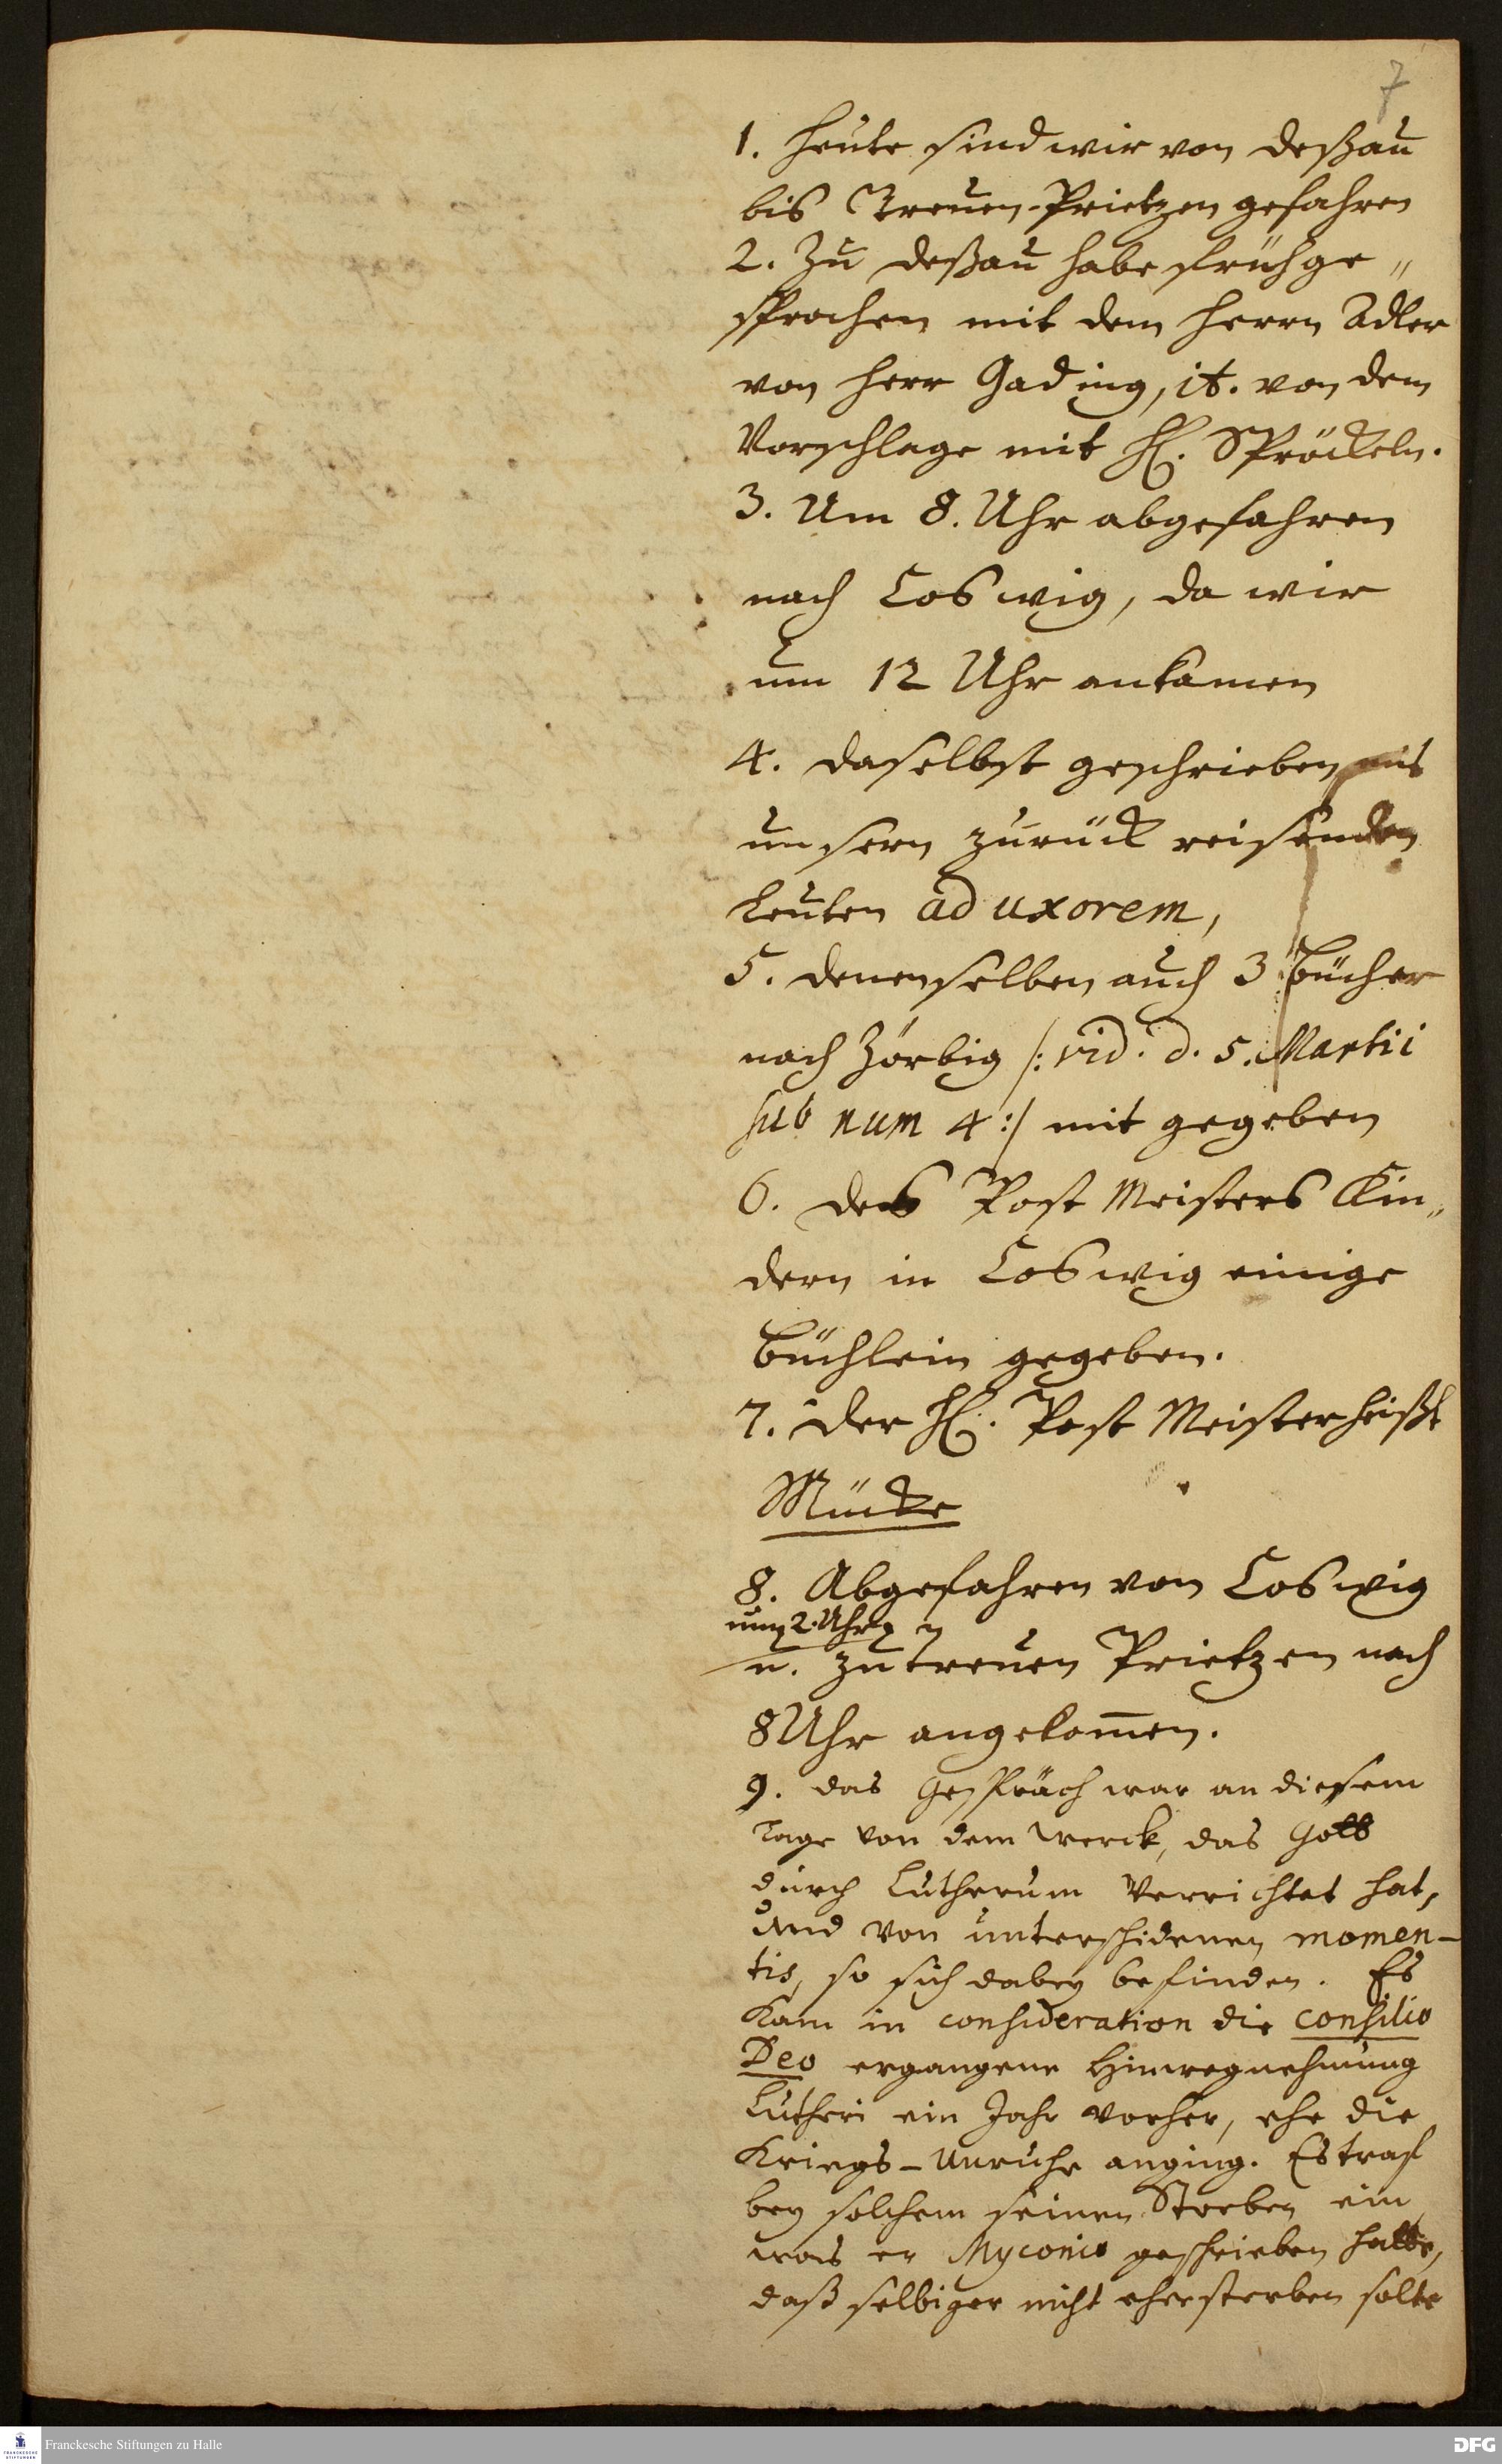 7
1. Heute sind wir von Deßau
bis Treuen-Prietzen gefahren
2. Zu Deßau habe früh ge„
sprochen mit dem Herrn Adler
von Herr Gading, it. von dem
Vorschlage mit H. Spröckeln.
3. Um 8. Uhr abgefahren
nach Coswig, da wir
um 12 Uhr ankamen
4. daselbst geschrieben mit
unsern zurück reisenden
Leuten ad uxorem,
5. denenselben auch 3 Bücher
nach Zörbig /: vid. d. 5. Martii
sub num 4 :/ mit gegeben
6. des Post Meisters Kin„
dern in Coswig einige
Büchlein gegeben.
7. Der H. Post Meister heißt
Mücke
8. Abgefahren von Coswig
um 2. Uhr
u. zu treuen Prietzen nach
8 Uhr angekom̅en.
9. das Gespräch war an diesem
Tage von dem Werck, das Gott
durch Lutherum verrichtet hat,
und von unterschidenen momen-
tis, so sich dabey befinden. Es
kam in consideration die consilio
Deo ergangene Hinwegnehmung
Lutheri ein Jahr vorher, ehe die
Kriegs-Unruhe anging. Es traf
bey solchem seinen Sterben ein
was er Myconio geschrieben hatte,
daß selbiger nicht eher sterben solte
Franckesche Stiftungen zu Halle
FRANCKESCHE STIFTUNGEN
DFG